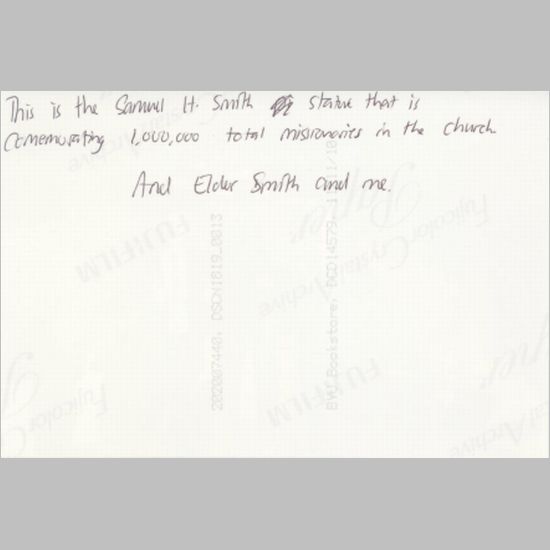 This is the Samuel H. Smith statue that is
Comemorating 1,000,000 total missionaries in the church
And Elder Smith and me.
FUJIFILM
Fujicolor Crystal Archive
Paper
202007440, DSCN1619_0013
BYU Bookstore,
FUJIFILM
Fujicolor